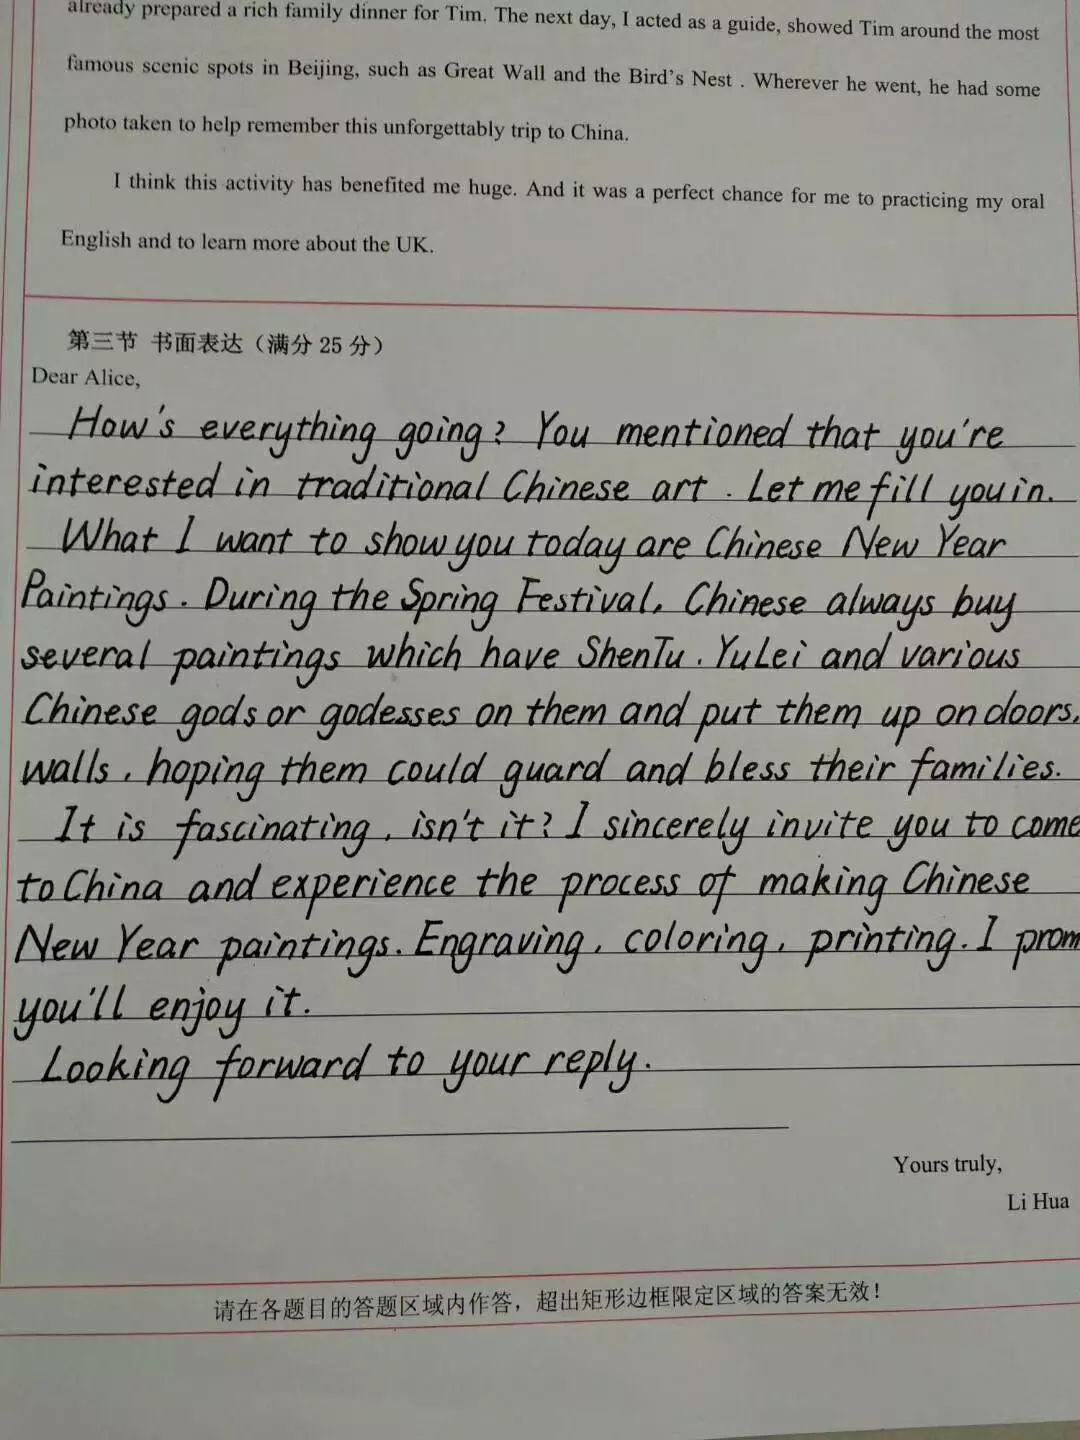 already prepared a rich family dinner for Tim. The next day, I acted as a guide, showed Tim around the most
famous scenic spots in Beijing, such as Great Wall and the Bird's Nest . Wherever he went, he had some
photo taken to help remember this unforgettably trip to China.
I think this activity has benefited me huge. And it was a perfect chance for me to practicing my oral
English and to learn more about the UK.
第三节 书面表达（满分 25 分）
Dear Alice,
How's everything going? You mentioned that you're
interested in traditional Chinese art . Let me fill you in.
What I want to show you today are Chinese New Year
Paintings. During the Spring Festival, Chinese always buy
several paintings which have ShenTu, YuLei and various
Chinese gods or godesses on them and put them up on doors,
walls, hoping them could guard and bless their families.
It is fascinating, isn't it? I sincerely invite you to come
to China and experience the process of making Chinese
New Year paintings. Engraving, coloring, printing. I prom
you'll enjoy it.
Looking forward to your reply.
Yours truly,
Li Hua
请在各题目的答题区域内作答，超出矩形边框限定区域的答案无效！